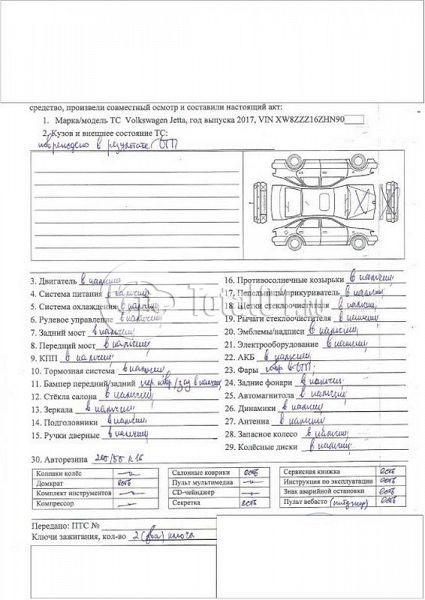 средство, произвели совместный осмотр и составили настоящий акт:
1. Марка/модель ТС Volkswagen Jetta, год выпуска 2017, VIN XW8ZZZ16ZHN90
2. Кузов и внешнее состояние ТС:
повреждено в результате ДТП
3. Двигатель в наличии
4. Система питания в наличии
5. Система охлаждения в наличии
6. Рулевое управление в наличии
7. Задний мост в наличии
8. Передний мост в наличии
9. КПП в наличии
10. Тормозная система в наличии
11. Бампер передний/задний пер. повр/зад в наличии
12. Стёкла салона в наличии
13. Зеркала в наличии
14. Подголовники в наличии
15. Ручки дверные в наличии
16. Противосолнечные козырьки в наличии
17. Пепельница/прикуриватель в наличии
18. Щетки стеклоочистителя в наличии
19. Рычаги стеклоочистителя в наличии
20. Эмблемы/надписи в наличии
21. Электрооборудование в наличии
22. АКБ в наличии
23. Фары повр. в ДТП
24. Задние фонари в наличии
25. Автомагнитола в наличии
26. Динамики в наличии
27. Антенна в наличии
28. Запасное колесо в наличии
29. Колёсные диски в наличии
30. Авторезина 205/55 R16
Колпаки колёс —
Домкрат есть
Комплект инструментов —
Компрессор —
Салонные коврики есть
Пульт мультимедиа —
CD-чейнджер —
Секретка есть
Сервисная книжка есть
Инструкция по эксплуатации есть
Знак аварийной остановки есть
Пульт вебасто есть
Передано: ПТС №
Ключи зажигания, кол-во 2 (два) ключа